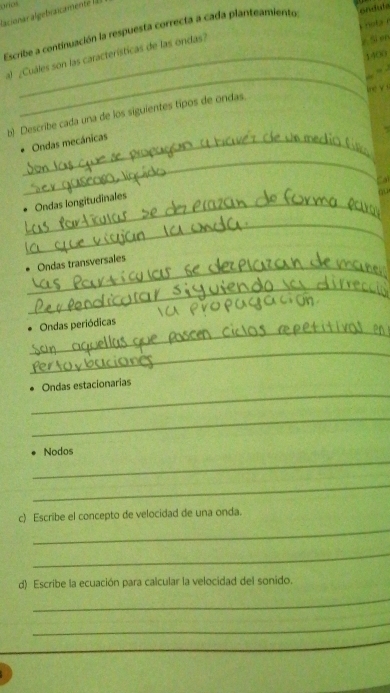 lacionar algebraicamente la
Escribe a continuación la respuesta correcta a cada planteamiento:
a) ¿Cuáles son las características de las ondas?
b) Describe cada una de los siguientes tipos de ondas.
• Ondas mecánicas
Son las que se propagan a través de un medio
ser gaseoso, liquido
• Ondas longitudinales
Las Particulas se dezplazan de forma
la que viajan la onda.
• Ondas transversales
Las Particular se dezplazan de
Perpendicolar siguiendo la
la propagación.
• Ondas periódicas
Son aquellas que poseen ciclos repetitivos en
perturbaciones
• Ondas estacionarias
• Nodos
c) Escribe el concepto de velocidad de una onda.
d) Escribe la ecuación para calcular la velocidad del sonido.
1400